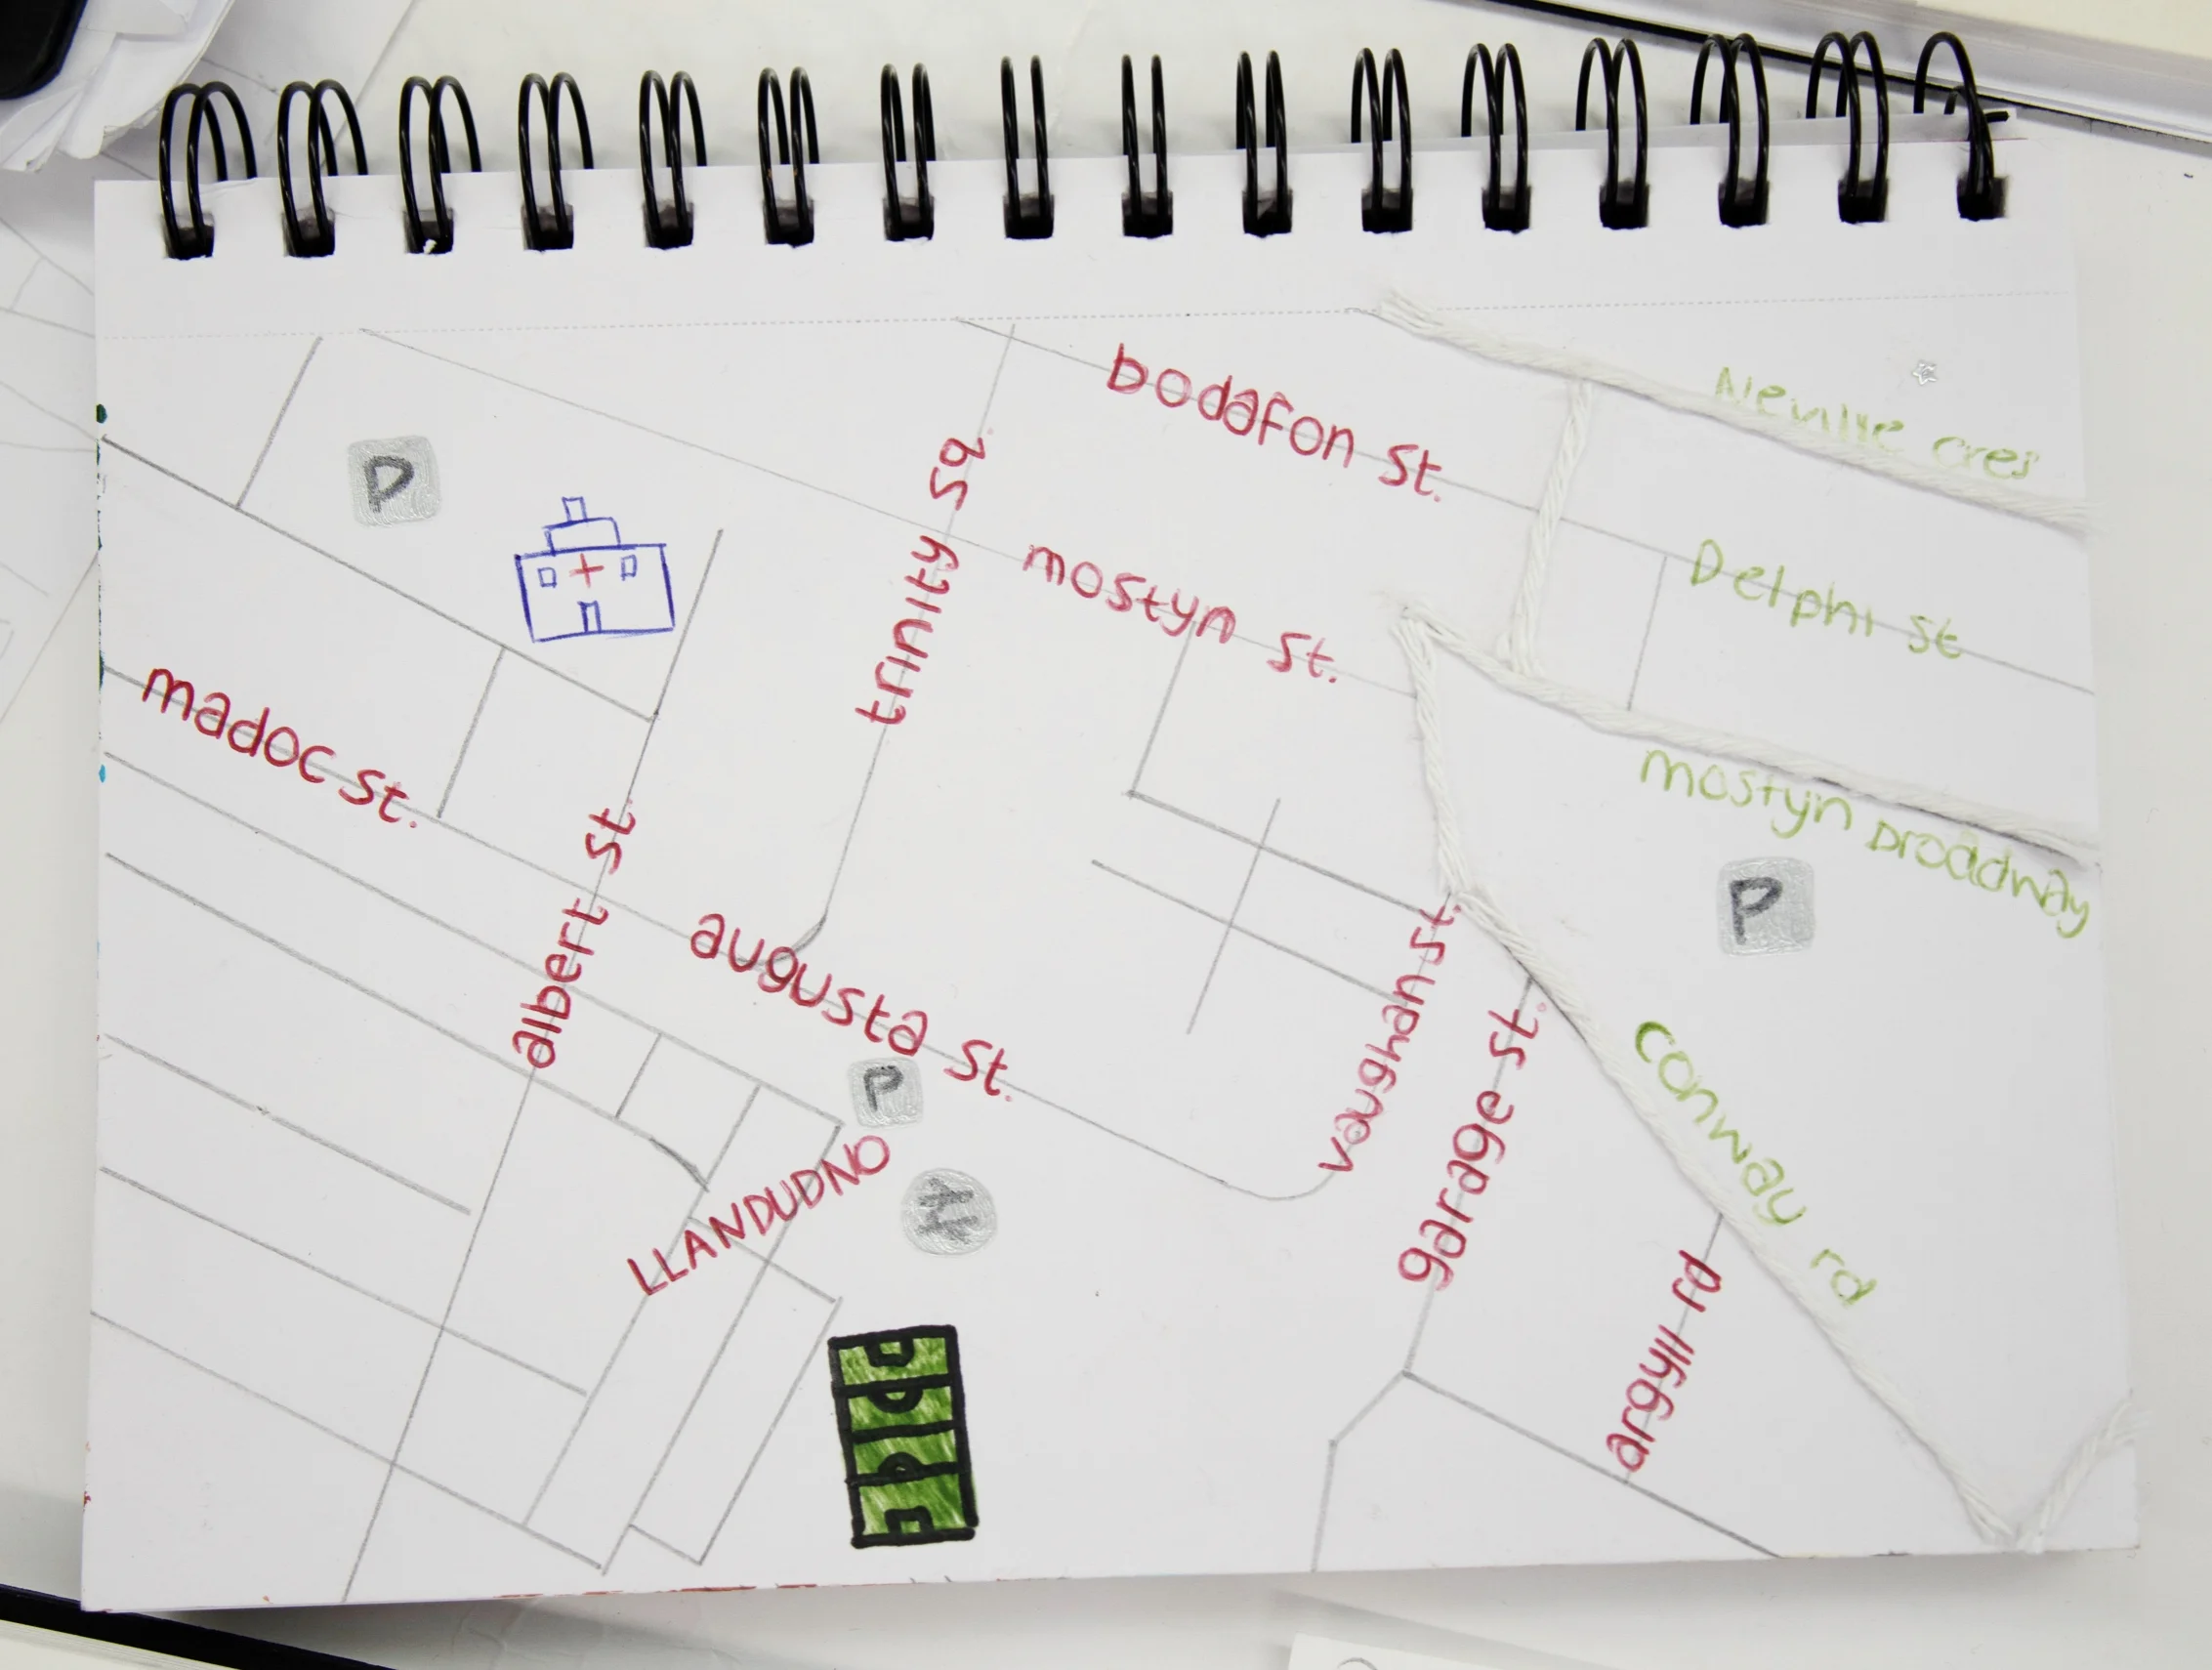 bodafon st.
Neville cres
P
trinity sq.
mostyn st.
Delphi st
madoc st.
mostyn broadway
albert st.
augusta st.
P
vaughan st.
garage st.
conway rd
P
LLANDUDNO
argyll rd